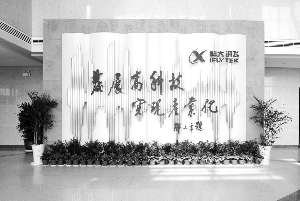 科大讯飞
IFLYTEK
发展高科技
实现产业化